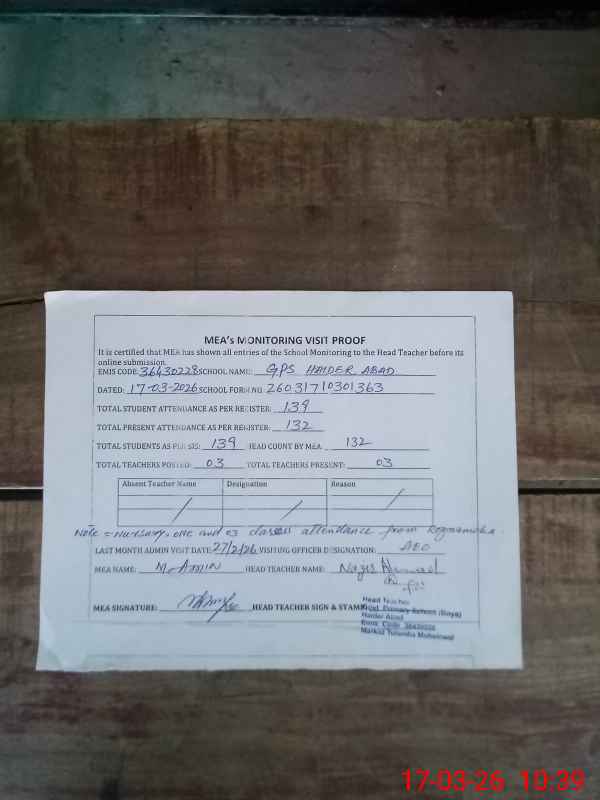 MEA's MONITORING VISIT PROOF
It is certified that MEA has shown all entries of the School Monitoring to the Head Teacher before its
online submission.
EMIS CODE: 36430228 SCHOOL NAME: GPS HAIDER ABAD
DATED: 17-03-2026 SCHOOL FORM NO: 26031710301363
TOTAL STUDENT ATTENDANCE AS PER REGISTER: 139
TOTAL PRESENT ATTENDANCE AS PER REGISTER: 132
TOTAL STUDENTS AS PER SIS: 139 HEAD COUNT BY MEA 132
TOTAL TEACHERS POSTED: 03 TOTAL TEACHERS PRESENT: 03
Absent Teacher Name Designation Reason
Note = Nursery, one and 03 classes attendance from
LAST MONTH ADMIN VISIT DATE: 27/2/26 VISITING OFFICER DESIGNATION: AEO
MEA NAME: M. AMIN HEAD TEACHER NAME: Ahmad
MEA SIGNATURE: HEAD TEACHER SIGN & STAMP
Head Teacher
Govt. Primary School (Boys)
Haider Abad
Emis Code 36430228
Markaz
17-03-26 10:39